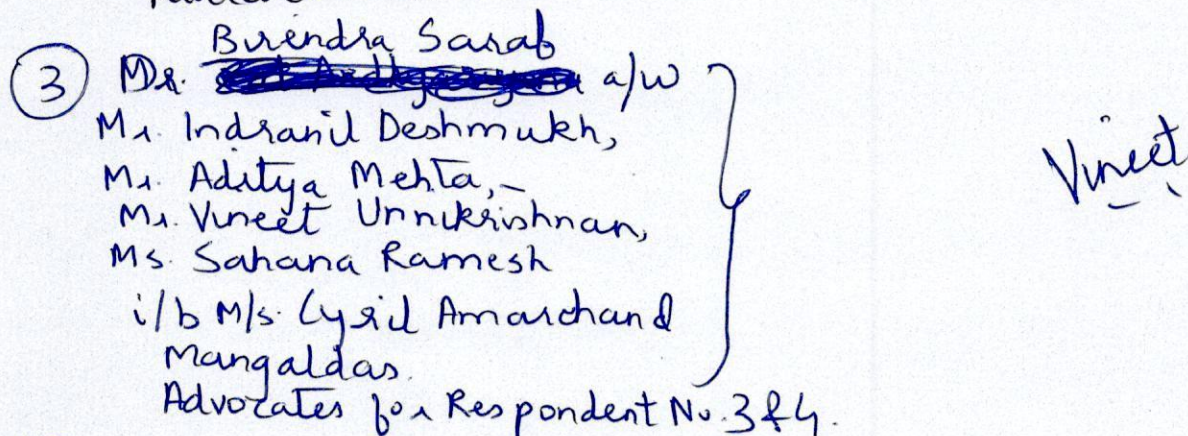 Birendra Saraf
③ Dr. a/w
Mr. Indranil Deshmukh,
Mr. Aditya Mehta,-
Mr. Vineet Unnikrishnan,
Ms. Sahana Ramesh
i/b M/s. Cyril Amarchand
Mangaldas.
Advocates for Respondent No. 3 & 4.
Vineet